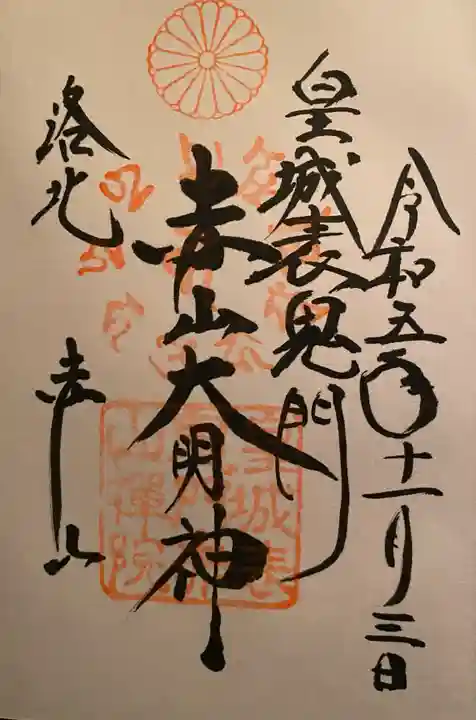 令和五年十一月三日
皇城表鬼門
赤山大明神
洛北
赤山
皇城表
山禪院